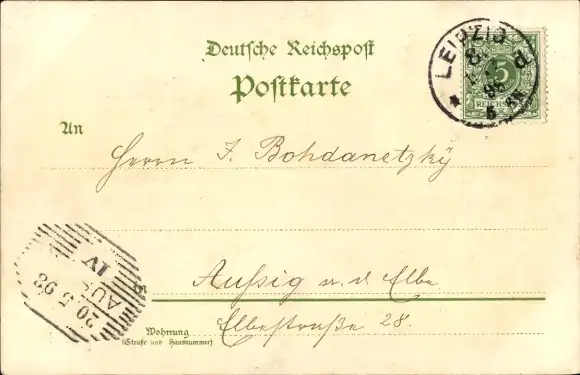 Deutsche Reichspost
Postkarte
LEIPZIG
5
REICHS
An
Herrn J. Bohdanetzký
Außig a. d. Elbe
Elbestraße 28.
Wohnung
(Straße und Hausnummer)
20 5 98
AUS
IV